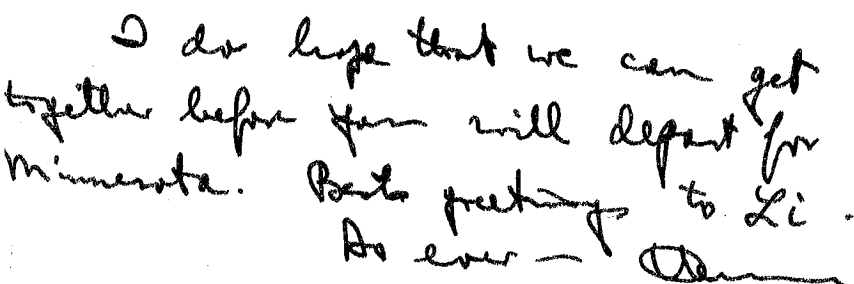 I do hope that we can get
together before you will depart for
Minnesota. Best greetings to Li.
As ever —